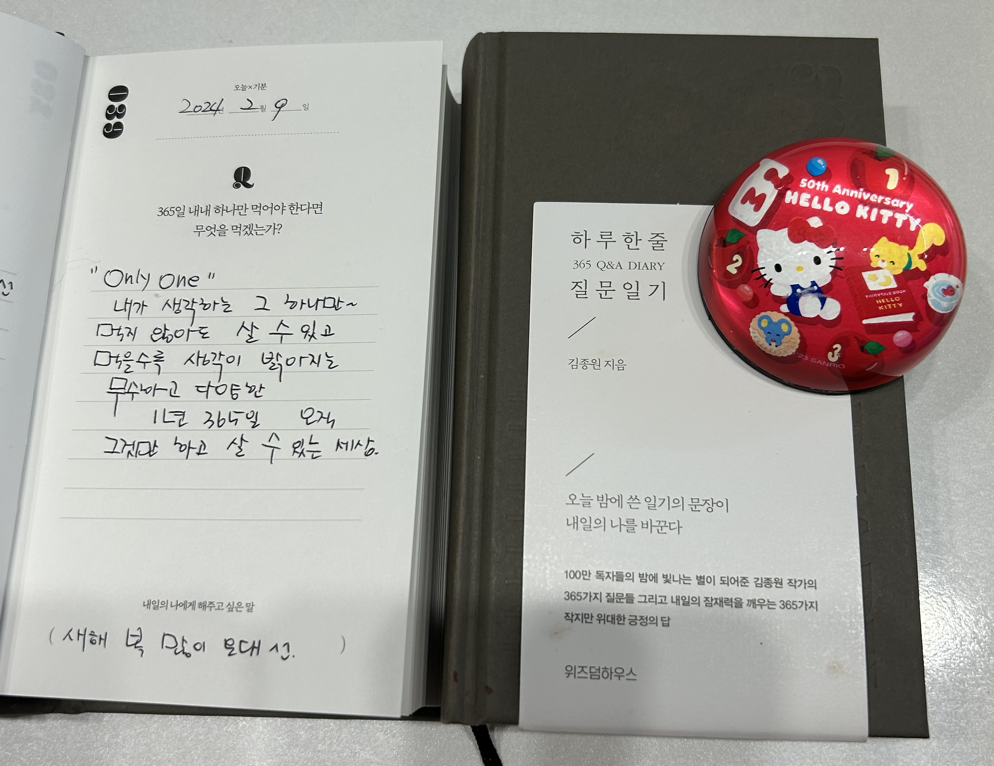 039
오늘×기분
2024년 2월 9일
Q
365일 내내 하나만 먹어야 한다면
무엇을 먹겠는가?
"Only One"
내가 생각하는 그 하나만~
먹지 않아도 살 수 있고
먹을수록 생각이 밝아지는
무수하고 다양한
1년 365일 오직
그것만 하고 살 수 있는 세상.
내일의 나에게 해주고 싶은 말
(새해 복 많이)
하루 한 줄
365 Q&A DIARY
질문 일기
김종원 지음
오늘 밤에 쓴 일기의 문장이
내일의 나를 바꾼다
100만 독자들의 밤에 빛나는 별이 되어준 김종원 작가의
365가지 질문들 그리고 내일의 잠재력을 깨우는 365가지
작지만 위대한 긍정의 답
위즈덤하우스
50th Anniversary
HELLO KITTY
1
2
3
HELLO KITTY
SANRIO